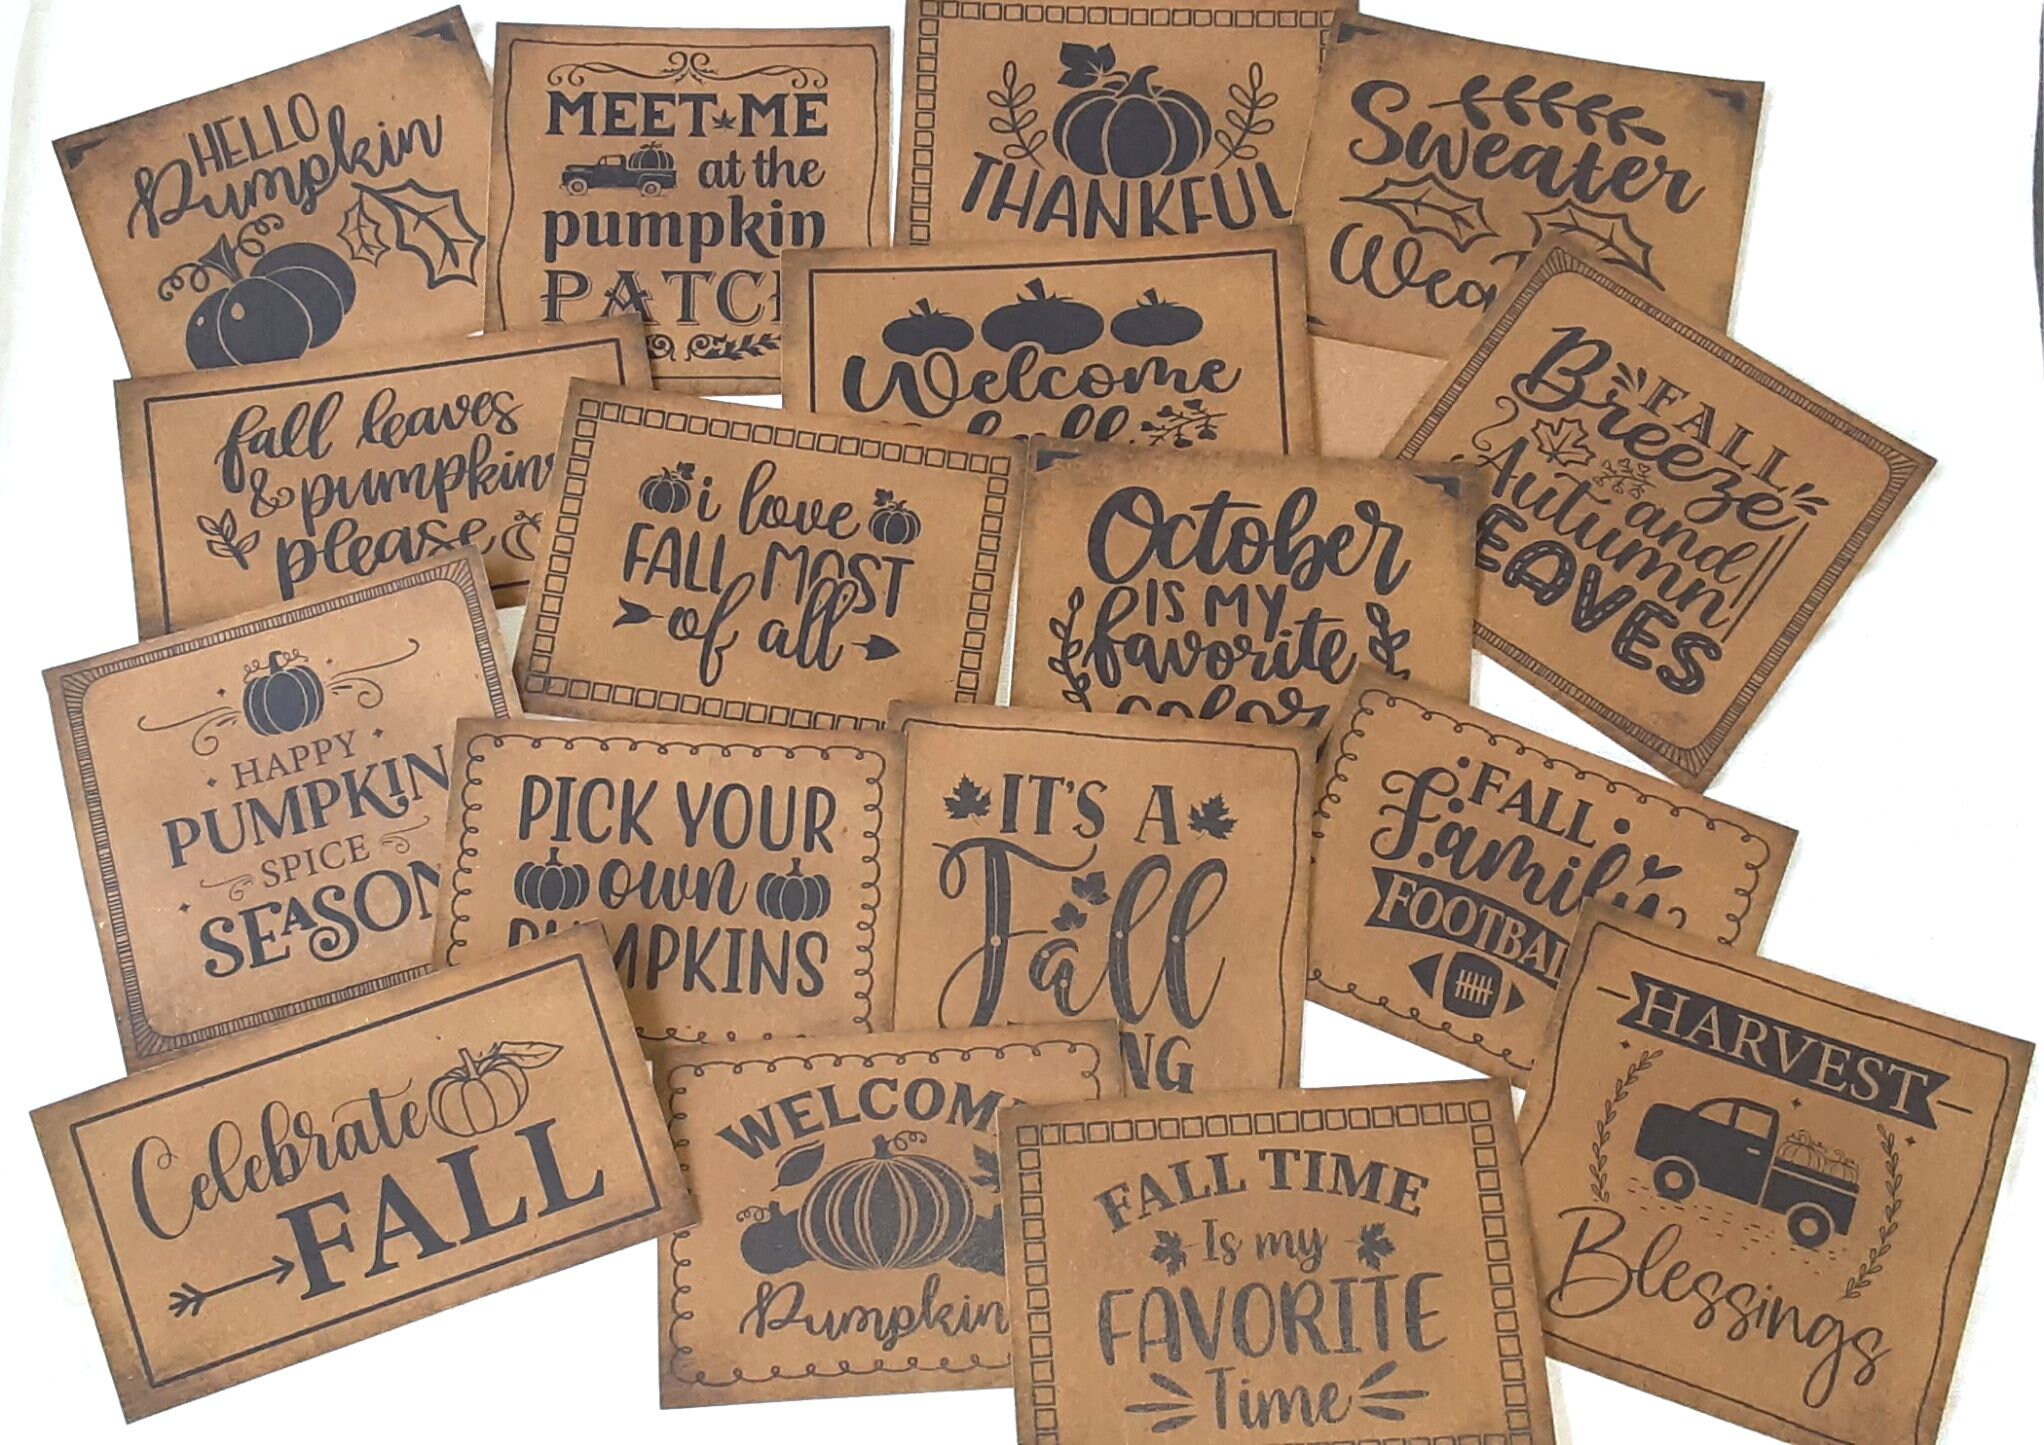 HELLO
Pumpkin
MEET ME
at the
pumpkin
PATC
THANKFUL
Sweater
Wea
fall leaves
& pumpkins
please
Welcome
fall
i love
FALL MOST
of all
October
IS MY
favorite
color
FALL
Breeze
and
Autumn
EAVES
HAPPY
PUMPKIN
SPICE
SEASON
PICK YOUR
own
PUMPKINS
IT'S A
Fall
NG
FALL
Family
FOOTBAL
HARVEST
Blessings
Celebrate
FALL
WELCOME
Pumpkin
FALL TIME
Is my
FAVORITE
Time